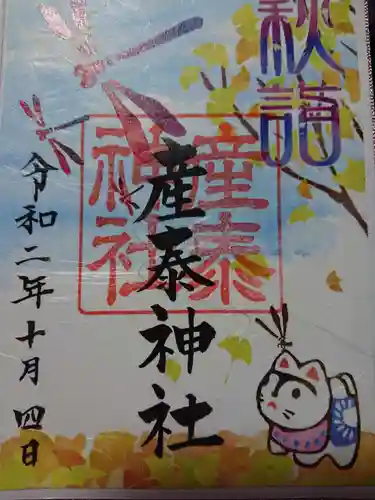 秋詣
産泰神社
産泰
神社
令和二年十月四日